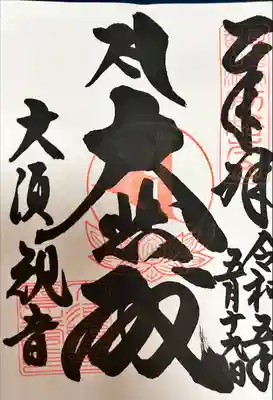 奉拝
令和五年
五月十九日
大悲殿
大須観音